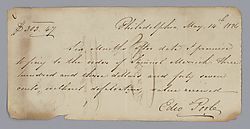 $303.47 Philadelphia May 14th 1836
Six Months after date I promise
to pay to the order of Samuel Merrick three
hundred and three dollars and forty seven
cents, without defalcation, value received
Poole